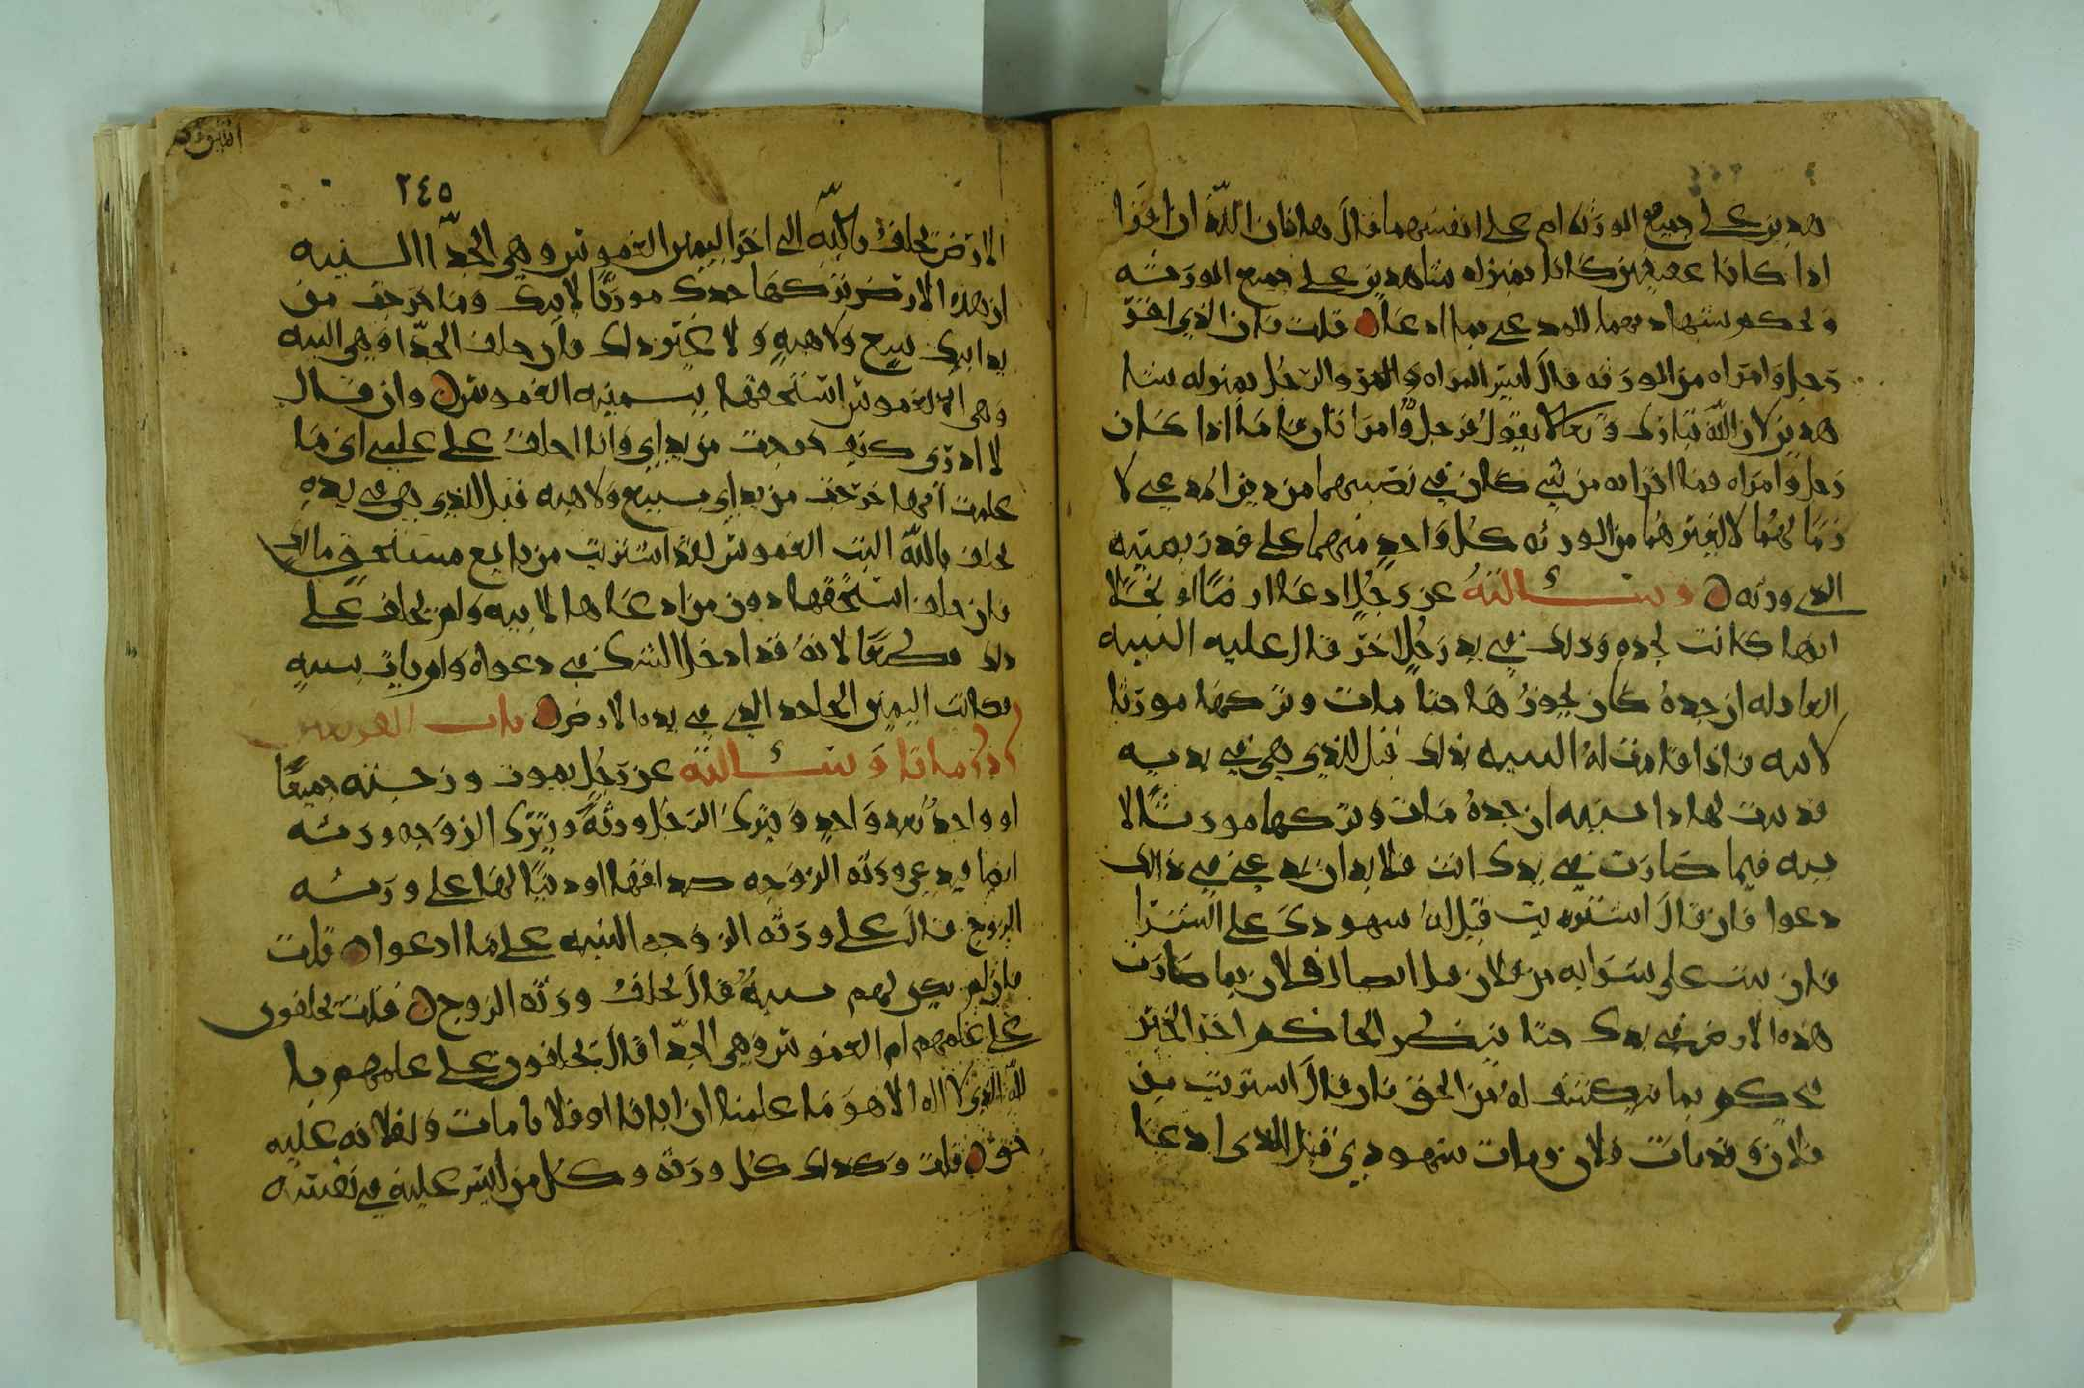 هدين على جميع الورثه ام على انفسهما قال هما فان الله ان اقرا
اذا كانا عفيفين كانا بمنزله شاهدين على جميع الورثه
ويحكم بشهادتهما للمدعي بما ادعاه قلت فان الذي اقر
رجل وامراه من الورثه قال ليس المراه والرجل بمنزله شا
هدين لان الله تبارك وتعالى يقول فرجل وامراتان فاما اذا كان
رجل وامراه فما اقرا به من شي كان في نصيبهما من دين المدعي لا
زما لهما لا لغيرهما من الورثه كل واحد منهما على قدر نصيبه
الذي ورثه وسئالته عن رجل ادعا ارضا او نخلا
انها كانت لجده وذلك في يد رجل اخر قال عليه البينه
العادله ان جده كان يحوزها حتا مات وتركها مورثا
لابيه فاذا قامت له البينه بذلك قيل للذي هي في يديه
قد بينت هذا ببينه ان جده مات وتركها مورثا لا
بيه فيما صارت في يدك انت فلا بد ان يدعي في ذالك
دعوا فان قال اشتريت قيل له شهودك على الشرا
فان بينت على شرايه من فلان قيل ايضا لفلان بما صارت
هذه الارض في يدك حتا ينظر الحاكم اخر الخبر
فيحكم بما يكشف له من الحق فان قال اشتريت من
فلان وقد مات فلان ومات شهودي قيل للذي ادعا
٢٤٥
الارض تحلف بالله الى اخر اليمين الغموس وهي الحدا البينه
ان هذه الارض تركها جدك مورثا لابيك وما خرجت من
يد ابيك ببيع ولا هبه ولا غير ذلك فان حلف الحدا وهي البينه
وهي الغموس استحقها بيمينه الغموس وان قال
لا ادري كيف خرجت من يد ابي وانا احلف على علمي اني ما
علمت انها خرجت من يد ابي ببيع ولا هبه قيل للذي هي في يده
تحلف بالله البت الغموس لقد اشتريت من بايع مستحق مالك
فان حلف استحقها دون من ادعاها لابيه ولم يحلف على
ذلك قطعا لانه قد ادخل الشك في دعواه ولم يات ببينه
فكانت اليمين الجاحد الذي في يده الارض باب
اذا ماتا وسئالته عن رجل يموت وزوجته جميعا
او واحد بعد واحد ويترك الرجل ورثه وتترك الزوجه ورثه
ايضا فيدعي ورثه الزوجه صداقها او دينا لها على ورثه
الزوج قال على ورثه الزوجه البينه على ما ادعوا قلت
فان لم يكن لهم بينه قال تحلف ورثه الزوج قلت يحلفون
على علمهم ام الغموس وهي الحدا قال يحلفون على علمهم با
لله الذي لا اله الا هو ما علمنا ان ابانا او فلانا مات ولفلانه عليه
حق قلت وكذلك كل ورثه وكل من ليس عليه في نفسه